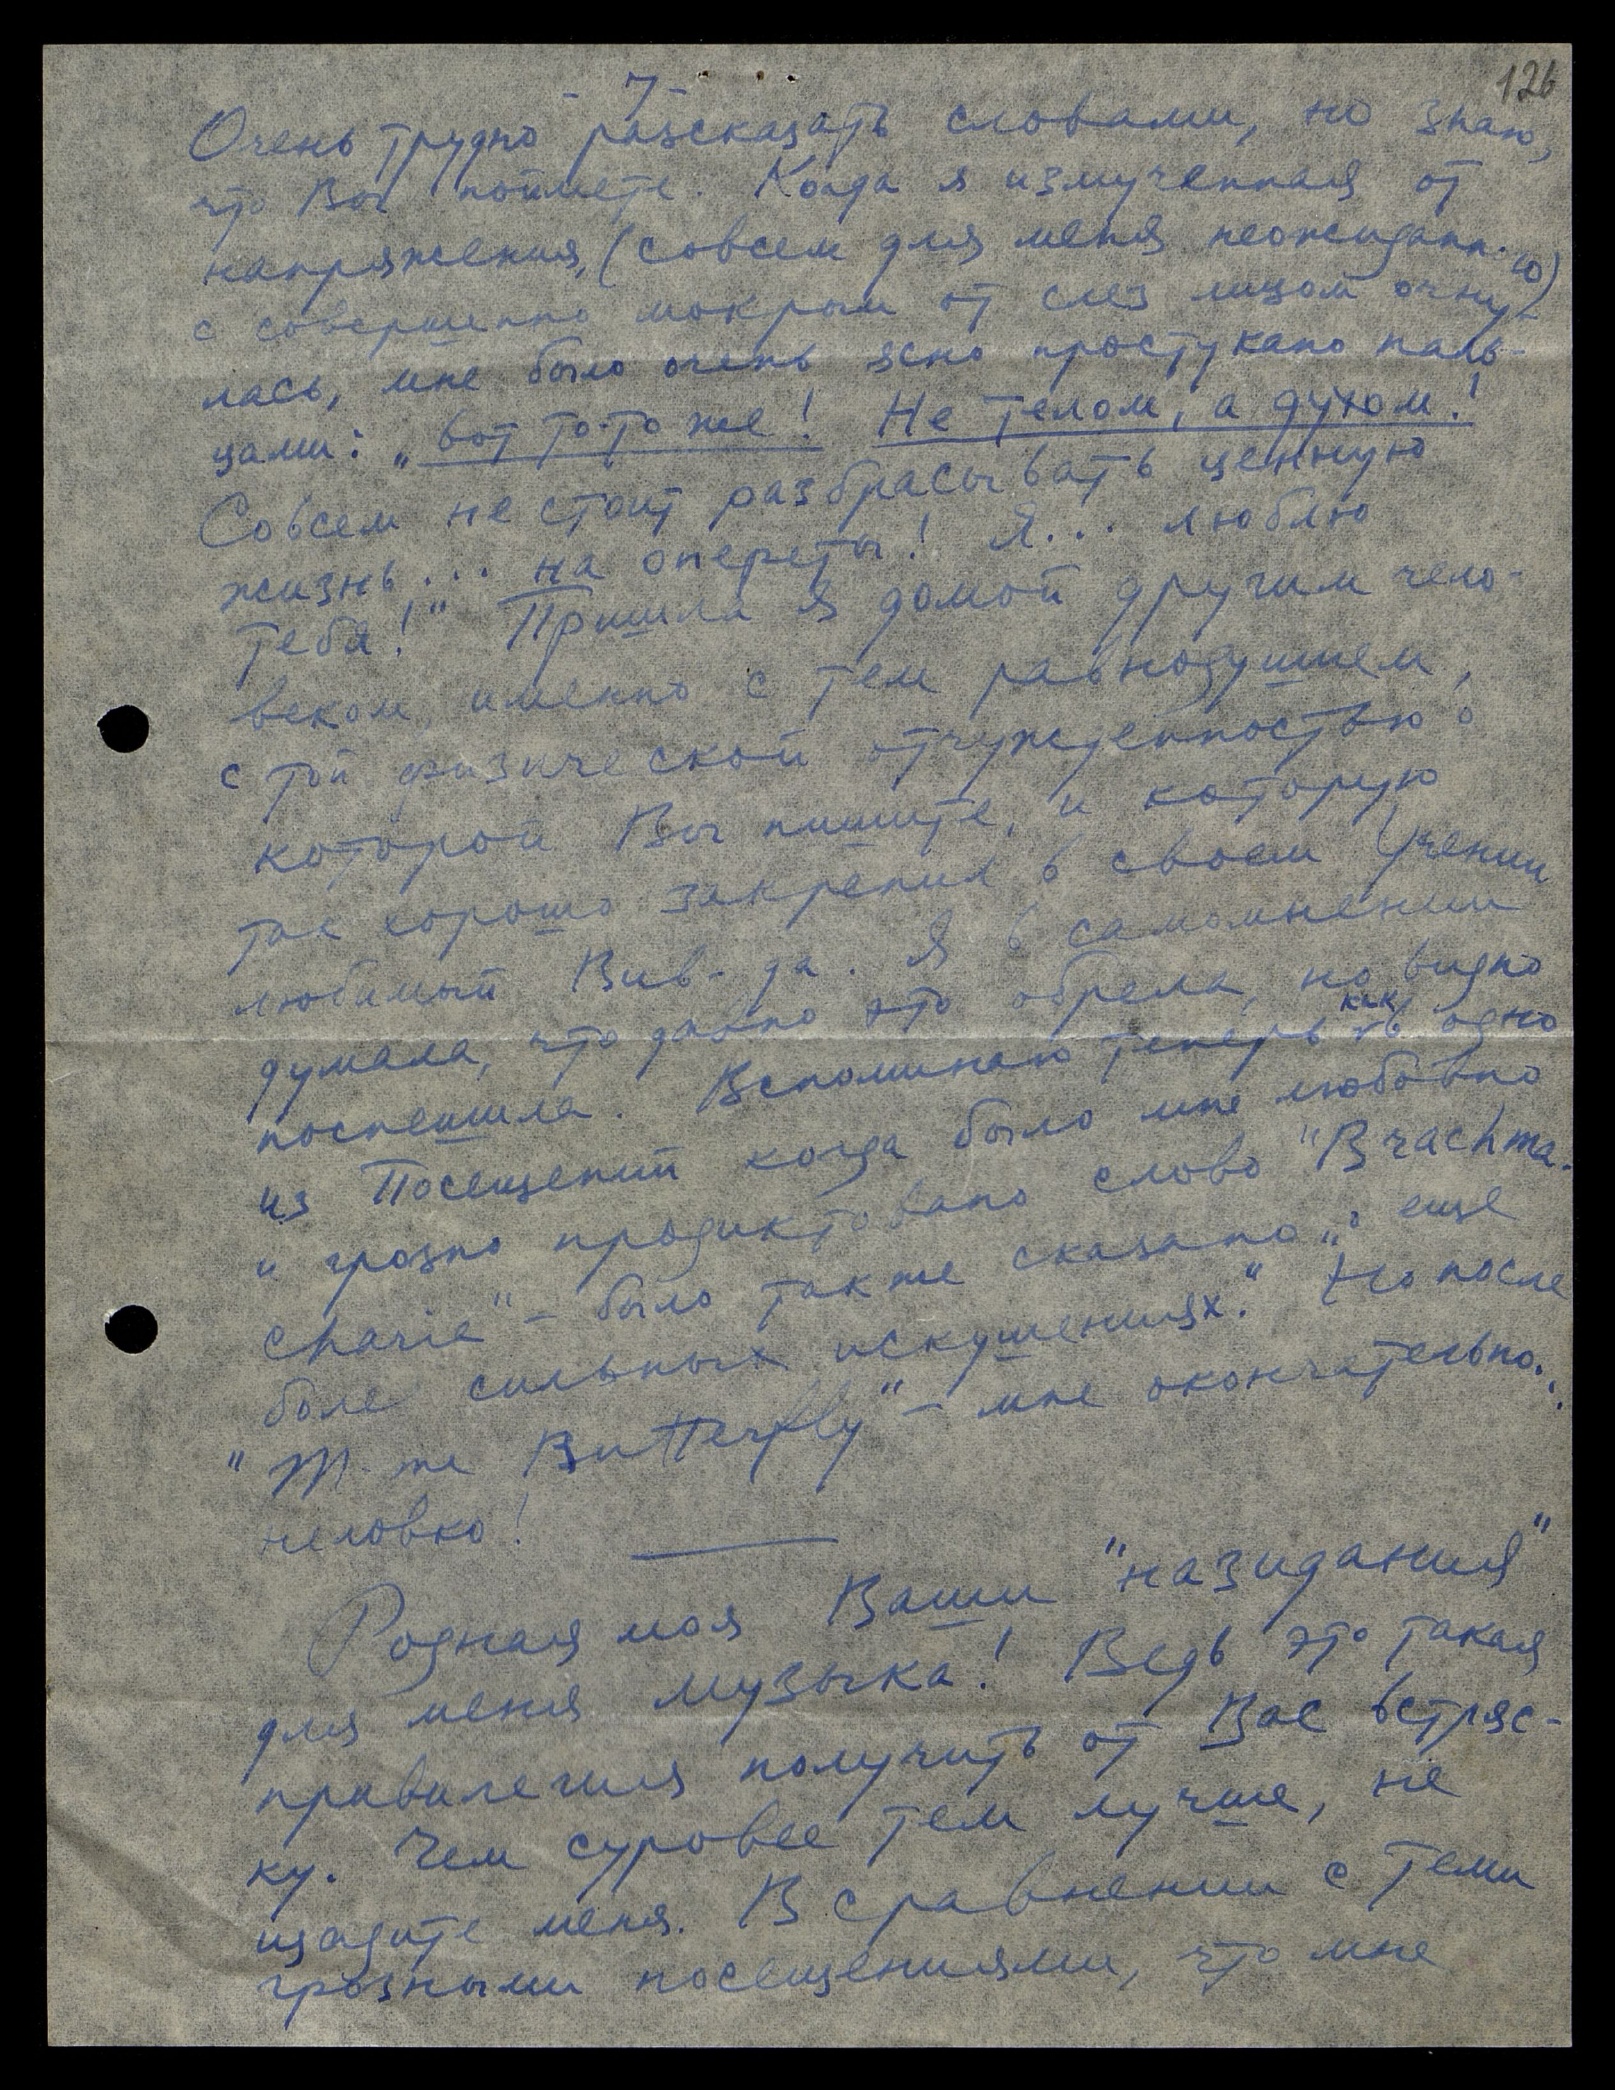 126
- 7 -
Очень трудно разсказать словами, но знаю,
что Вы поймете. Когда я измученная от
напряжения, (совсем для меня неожиданно)
с совершенно мокрым от слез лицом очну-
лась, мне было очень ясно простукано паль-
цами: „вот то-то же! Не телом, а духом!
Совсем не стоит разбрасывать ценную
жизнь... на опереты! Я... люблю
тебя!" Пришла я домой другим чело-
веком, именно с тем равнодушием,
с той физической отчужденностью о
которой Вы пишите, и которую
так хорошо закрепил в своем Учении
любимый Вив-да. Я в самомнении
думала, что давно это обрела, но видно
поспешила. Вспоминаю теперь как в одно
из Посещений когда было мне любовно
и грозно продиктовано слово "Brachma-
charie" - было также сказано „о еще
боле сильных искушениях." Но после
"M-me Butterfly" - мне окончательно..
неловко!
Родная моя Ваши "назидания"
для меня музыка! Ведь это такая
привилегия получить от Вас встряс-
ку. Чем суровее тем лучше, не
щадите меня. В сравнении с теми
грозными посещениями, что мне